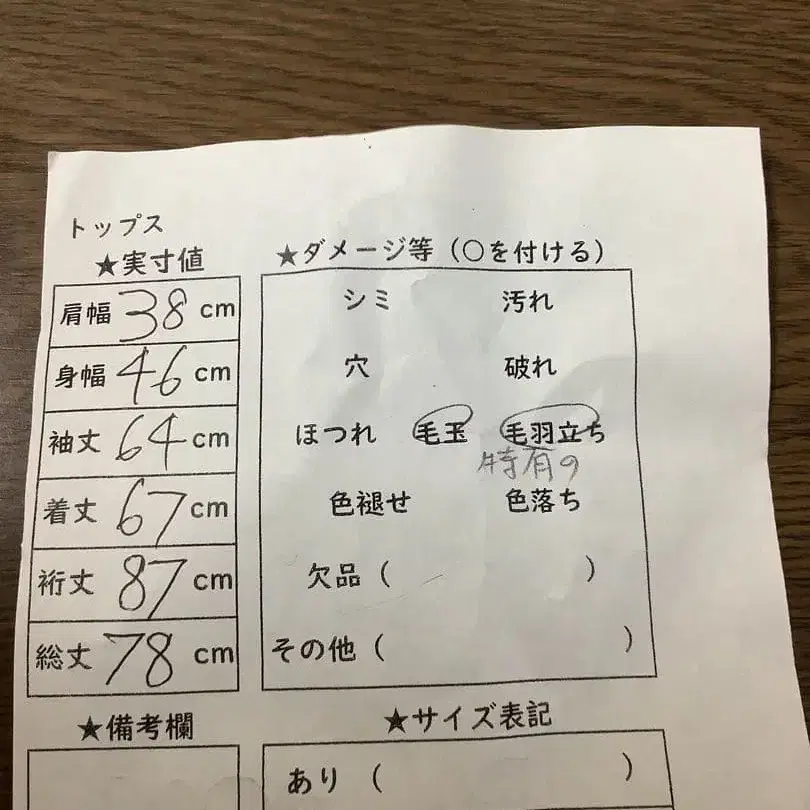 トップス
★実寸値
肩幅 38 cm
身幅 46 cm
袖丈 64 cm
着丈 67 cm
裄丈 87 cm
総丈 78 cm
★ダメージ等（○を付ける）
シミ 汚れ
穴 破れ
ほつれ 毛玉 毛羽立ち
特有の
色褪せ 色落ち
欠品（ ）
その他（ ）
★備考欄
★サイズ表記
あり（ ）